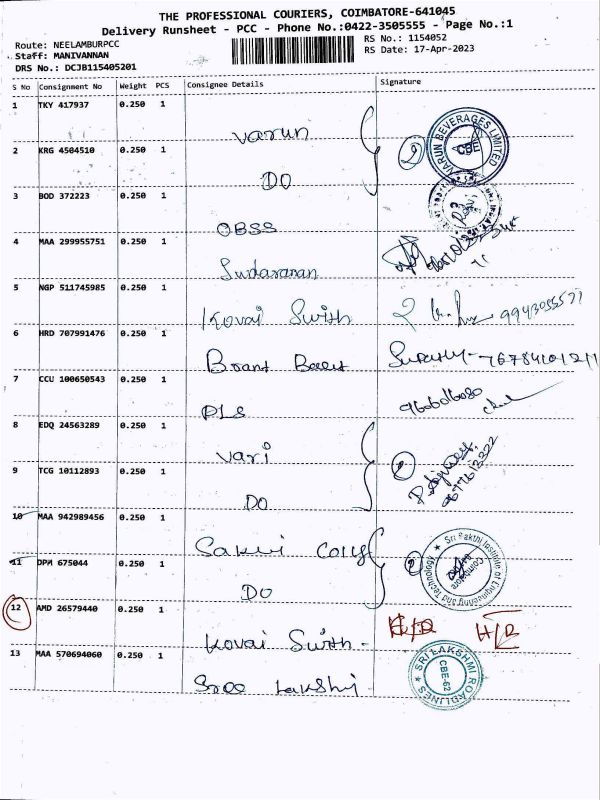 THE PROFESSIONAL COURIERS, COIMBATORE-641045
Delivery Runsheet - PCC - Phone No.:0422-3505555 - Page No.:1
Route: NEELAMBURPCC
Staff: MANIVANNAN
DRS No.: DCJB115405201
RS No.: 1154052
RS Date: 17-Apr-2023
S No Consignment No Weight PCS Consignee Details Signature
1 TKY 417937 0.250 1 Varun
VARUN BEVERAGES LIMITED CBE
2 KRG 4504510 0.250 1 DO
2
3 BOD 372223 0.250 1 OBSS
4 MAA 299955751 0.250 1 Sudararan
5 NGP 511745985 0.250 1 Kovai Swith 9943055577
6 HRD 707991476 0.250 1 Brant Beest
7 CCU 100650543 0.250 1 PLS 9606016080
8 EDQ 24563289 0.250 1 Vari
9 TCG 10112893 0.250 1 DO
10 MAA 942989456 0.250 1 Sakvi Collg
2
11 DPM 675044 0.250 1 DO
Sri Sakthi Institute of Engineering and Technology Coimbatore
12 AMD 26579440 0.250 1 Kovai Swith - H/R
13 MAA 570694060 0.250 1 Sree Lakshij
SRI LAKSHMI ROADLINES CBE-62